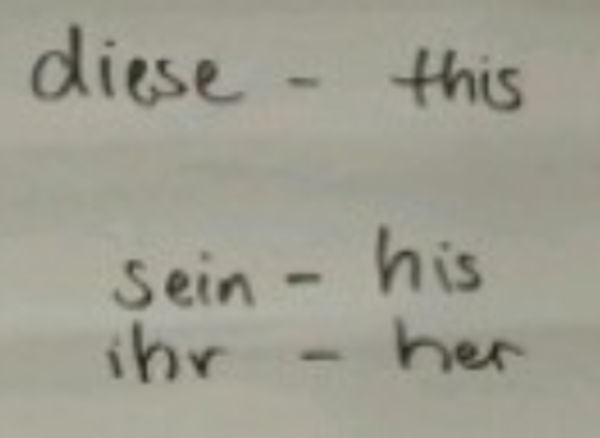 diese - this
sein - his
ihr - her